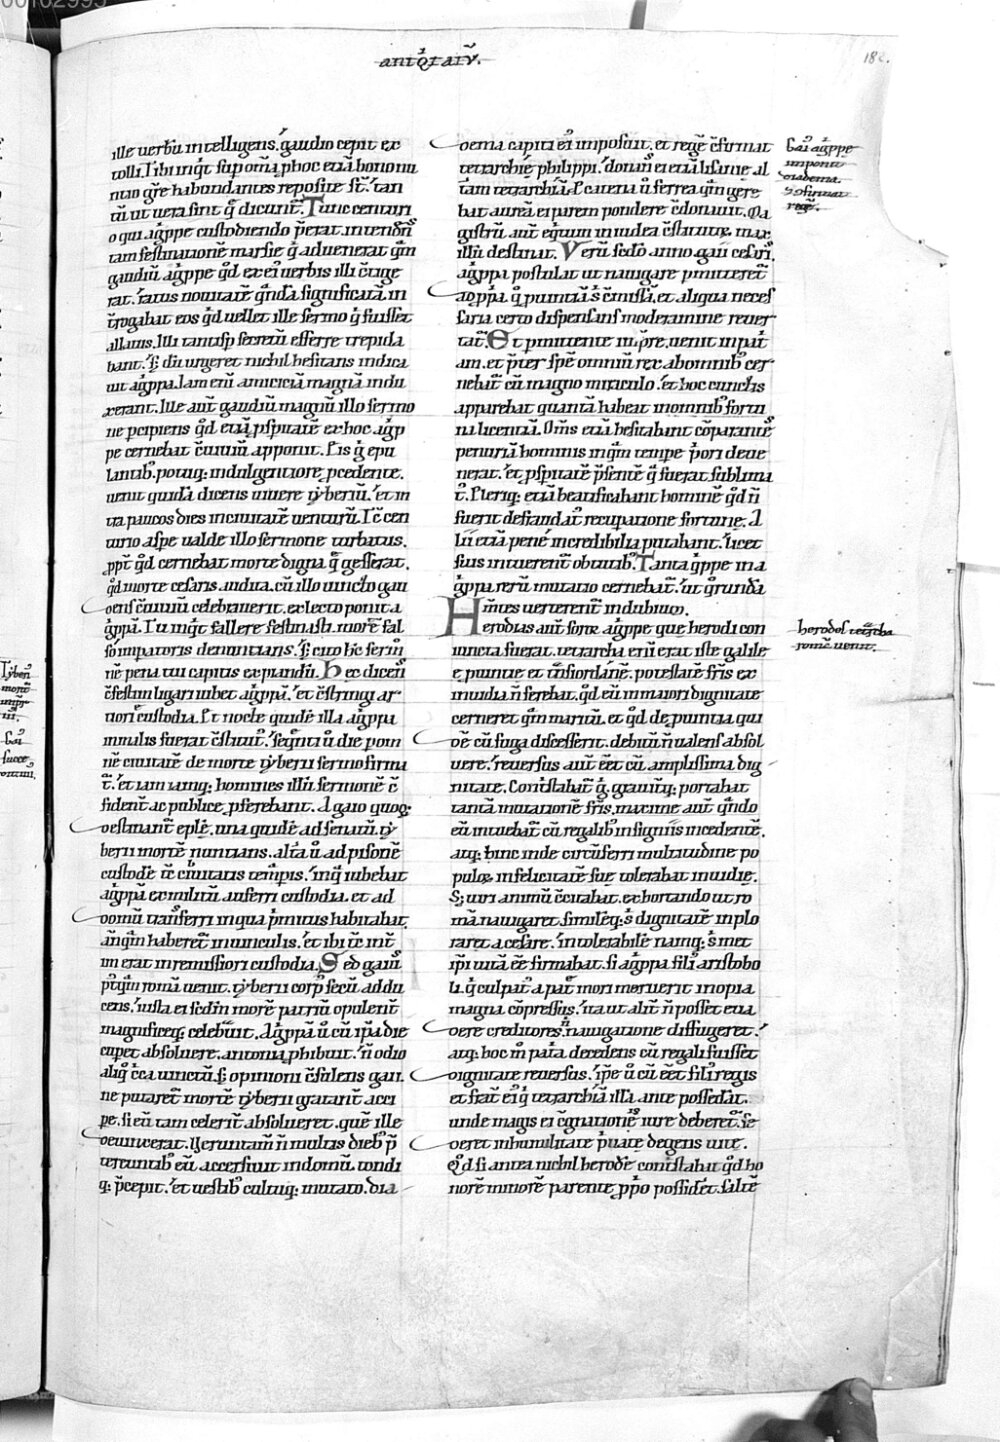 antiq̄tatū.
182.
ille uerbū intelligens. gaudio cepit ex
tolli. Tibi inq̄t sup om̄a phoc etiā bonorum
tuo gr̄e habundantes reposite st̄. tan
tū ut uera sint q̄ dicunt̄. Tunc centuri
o qui agippe custodiendo p̄erat. intendn̄s
tam festinationē marsie q̄ aduenerat q̄m
gaudiū agippe q̄d ex ei᷒ uerbis illi c̄tige
rat. ratus nouitatē q̄ndā significatā. in
t̄rogabat eos q̄d uellet ille sermo q̄ fuisset
allatus. Illi tantisp secretū efferre trepida
bant. S; dū urgeret nichil hesitans indica
uit agippa. Iam eni amiciciā magnā indu
xerant. Ille aut̄ gaudiū magnū illo sermo
ne pcipiens q̄d etiā psperitatē ex hoc agip
pe cernebat c̄uiuiū apponit. Eis g̊ epu
lantib᷒ potuq; indulgentiore pcedente.
uenit quidā dicens uiuere tyberiū. et in
tra paucos dies in ciuitatē uenturū. Tc̄ cen
turio aspe ualde illo sermone turbatus.
ppt̄ q̄d cernebat morte digna q̄ gesserat.
q̄d morte cesaris audita. cū illo uincto gau
dens c̄uiuiū celebrauerit. ex lecto ponit a
gippā. Tu inq̄t fallere festinasti. mortē fal
so imperatoris denuntians. S; cito h̄c sermo
nē pena tui capitis expiandū. Hec dicens
c̄festim ligari iubet agippā. et c̄stringi ar
tiori custodia. Et nocte quidē illa agippa
in malis fuerat c̄stitut᷒. seq̄nti ū die p om
nē ciuitatē de morte tyberii sermo firma
t̄. et iam iamq; homines illū sermonē c̄
fident̄ ac publice pferebant. A gaio quoq;
destinant̄ eplē. una quidē ad senatū. ty
berii mortē nuntians. alt̄a ū ad pisonē
custodē tc̄ ciuitatis temp̄is. inq̄ iubebat
agippā ex militū auferri custodia. et ad
domū transferri in qua p̄mitus habitabat
anq̄m haberet in uinculis. et ibi tc̄ int̄
im erat in remissiori custodia. Sed gaiū
p᷒tq̄m romā uenit. tyberii corp᷒ secū addu
cens. iuxta ei᷒ sedm morē patriū opulent̄
magnificeq; celebrauit. Agippā ū cū ipa die
cuperet absoluere. antonia phibuit. n̄ odio
aliq̄ c̄ca uinctū. S; opinioni c̄sulens gaii.
ne putaret̄ mortē tyberii gratant̄ acci
pe. si eū tam celerit̄ absolueret. quē ille
deuinxerat. Veruntam̄ n̄ multis dieb᷒ p̄
tereuntib᷒ eū accersiuit in domū. tondi
q; p̄cepit. et uestib᷒ cultuq; mutato. dia
dema capiti ei᷒ imposuit. et regē c̄firmat
tetrarchię philippi. donans ei etiā lisanie al
tam tetrarchiā. P catena ū ferrea q̄m gere
bat aureā ei parem pondere c̄donauit. Ma
gistrū aut̄ equitum in iudea c̄stituit. max.
illū destinat. Verū sc̄do anno gaii cesaris.
agippa postulat ut nauigare pmitteret̄
ad ppia q̄ puinciā s᷒ c̄missā. et aliqua neces
saria certo dispensans moderamine reuer
tat̄. Et pmittente impre. uenit inpat̄
am. et p̄ter spē omniū rex ab omnib᷒ cer
nebat̄ cū magno miraculo. et hoc cunctis
apparebat quantā habeat in omnib᷒ fortu
na licentiā. Oms etiā hesitabant cōparantes
penuriā hominis inq̄m tempe p̄ori deue
nerat. et psperitatē p̄sentē q̄ fuerat sublima
t᷒. Pleriq; etiā beatificabant hominē q̄d n̄
fuerit defraudat᷒ recupatione fortune. A
lii etiā penē incredibilia putabant. licet
suis intuerent̄ obtutib᷒. Tanta agippe ma
gippa rerū mutatio cernebat̄. ut q̄rundā
mentes uerterent̄ in dubium.
Herodias aut̄ soror agippe que herodi con
iuncta fuerat. tetrarcha eni erat iste galile
e puintie et t̄nsiordanē. potestatē fr̄is ex
inuidia n̄ ferebat. q̄d eū in maiori dignitate
cerneret q̄m maritū. et q̄d de puintia qui
dē cū fuga discesserit. debitū n̄ ualens absol
uere. reuersus aut̄ eēt cū amplissima dig
nitate. Contristabat̄ g̊. grauiterq; portabat
tantā mutationē fr̄is. maxime aut̄ q̄ndo
eū intuebat̄ cū regalib᷒ insigniis incedentē.
atq; hinc inde circūferri multitudine po
puloꝝ. infelicitatē suę tolerabat inuidię.
S; uiri animū c̄citabat. exhortando ut ro
mā nauigaret. similēq; s᷒ dignitatē implo
raret a cesare. intolerabilē namq; s᷒ met
ipi uitā eē firmabat. si agippa fili᷒ aristobo
li. q̄ culpat᷒ a pat̄ mori meruerit. inopia
magna cōpressus. ita ut alit̄ n̄ posset eua
dere creditores. n̄ nauigatione diffugeret.
atq; hoc m̊ patria decedens cū regali fuisset
dignitate reuersus. ipse ū cū eēt fili᷒ regis
et frat̄ ei᷒ q̄ tetrarchiā illā ante possedit.
unde magis ei cognationis iure deberet̄. se
deret in humilitate p̄uatę degens uitę.
Qd si antea nichil herodē contristabat q̄d ho
norē minorē parente ppo possidet. saltē
Gai᷒ agippe
imponit
diadema.
9firmat
regē.
herodes tetrarcha
romā uenit.
Tyberii
mortē